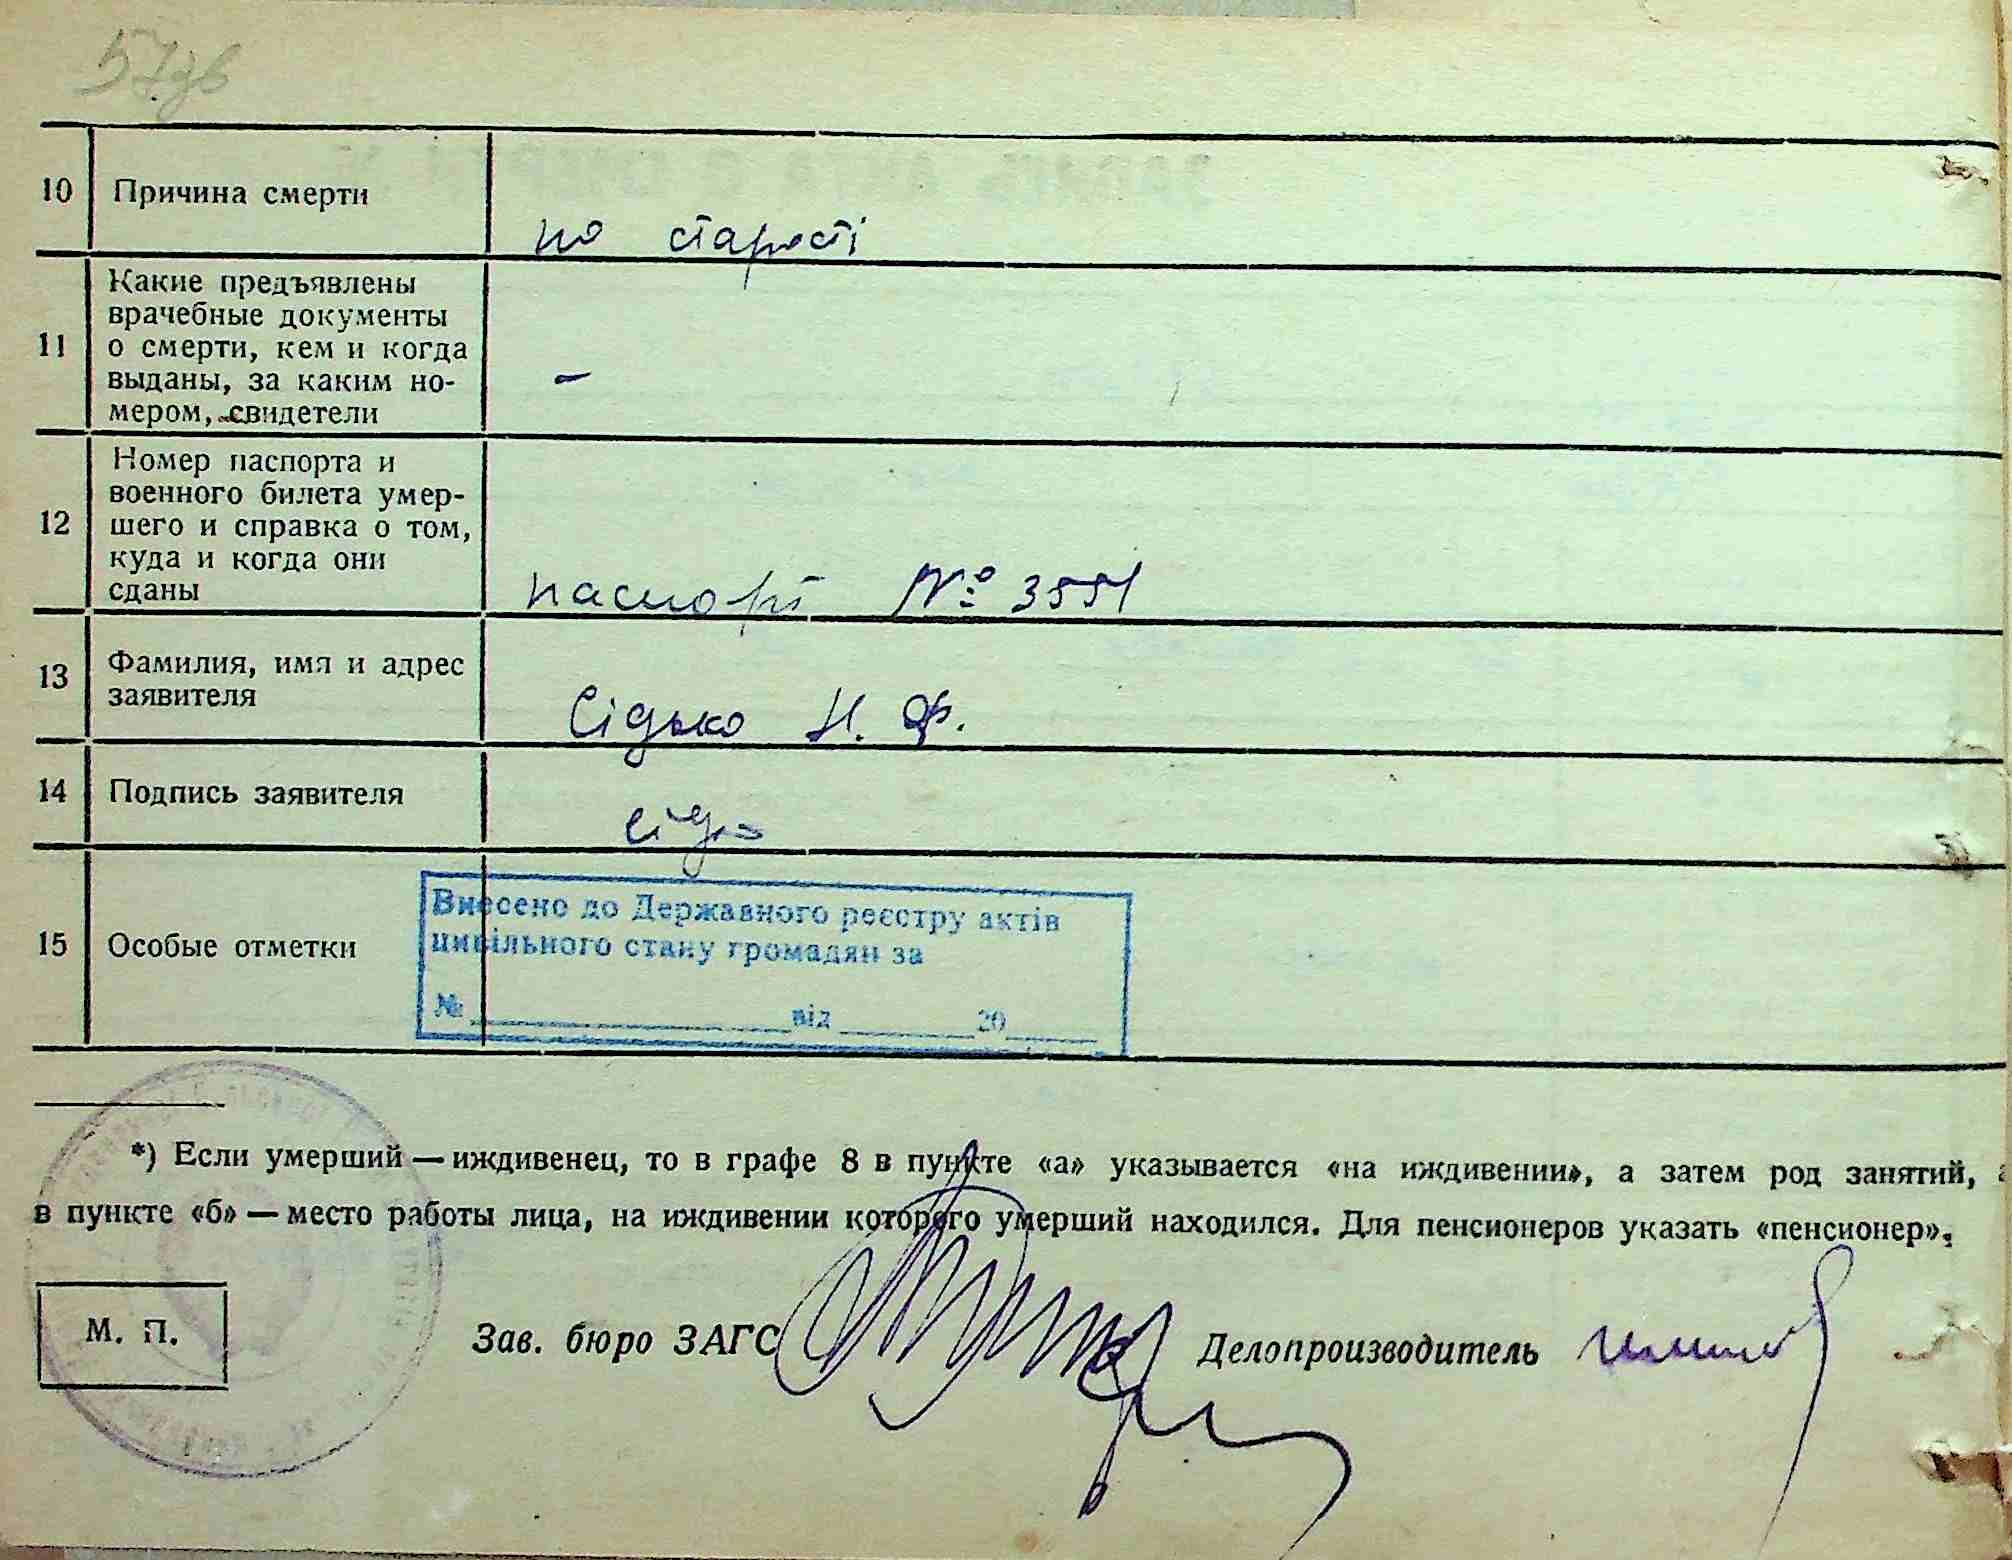 57зв
10 Причина смерти
по старості
11 Какие предъявлены
врачебные документы
о смерти, кем и когда
выданы, за каким но-
мером, свидетели
–
12 Номер паспорта и
военного билета умер-
шего и справка о том,
куда и когда они
сданы
паспорт № 3551
13 Фамилия, имя и адрес
заявителя
Сідько Н. Ф.
14 Подпись заявителя
15 Особые отметки
Внесено до Державного реєстру актів
цивільного стану громадян за
№ від 20
*) Если умерший — иждивенец, то в графе 8 в пункте «а» указывается «на иждивении», а затем род занятий, а
в пункте «б» — место работы лица, на иждивении которого умерший находился. Для пенсионеров указать «пенсионер».
М. П. Зав. бюро ЗАГС Делопроизводитель